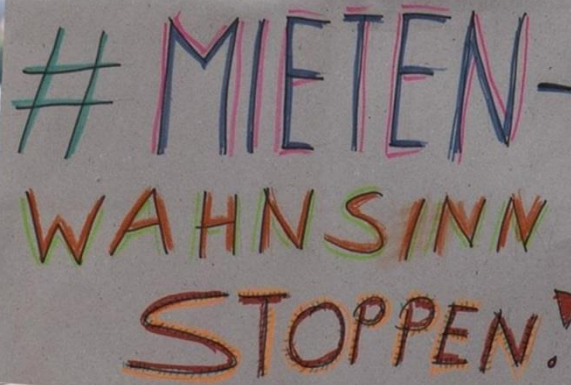 # MIETEN-
WAHNSINN
STOPPEN!